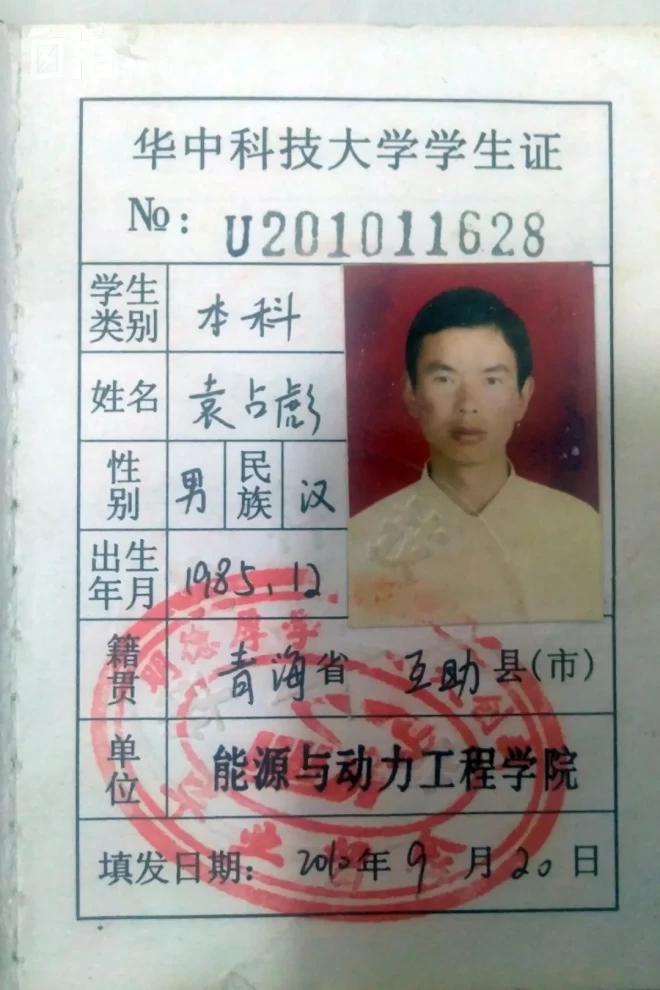 华中科技大学学生证
№: U201011628
学生类别 本科
姓名 袁占彪
性别 男 民族 汉
出生年月 1985.12
籍贯 青海省 互助县(市)
单位 能源与动力工程学院
填发日期: 2010年9月20日
明德厚学